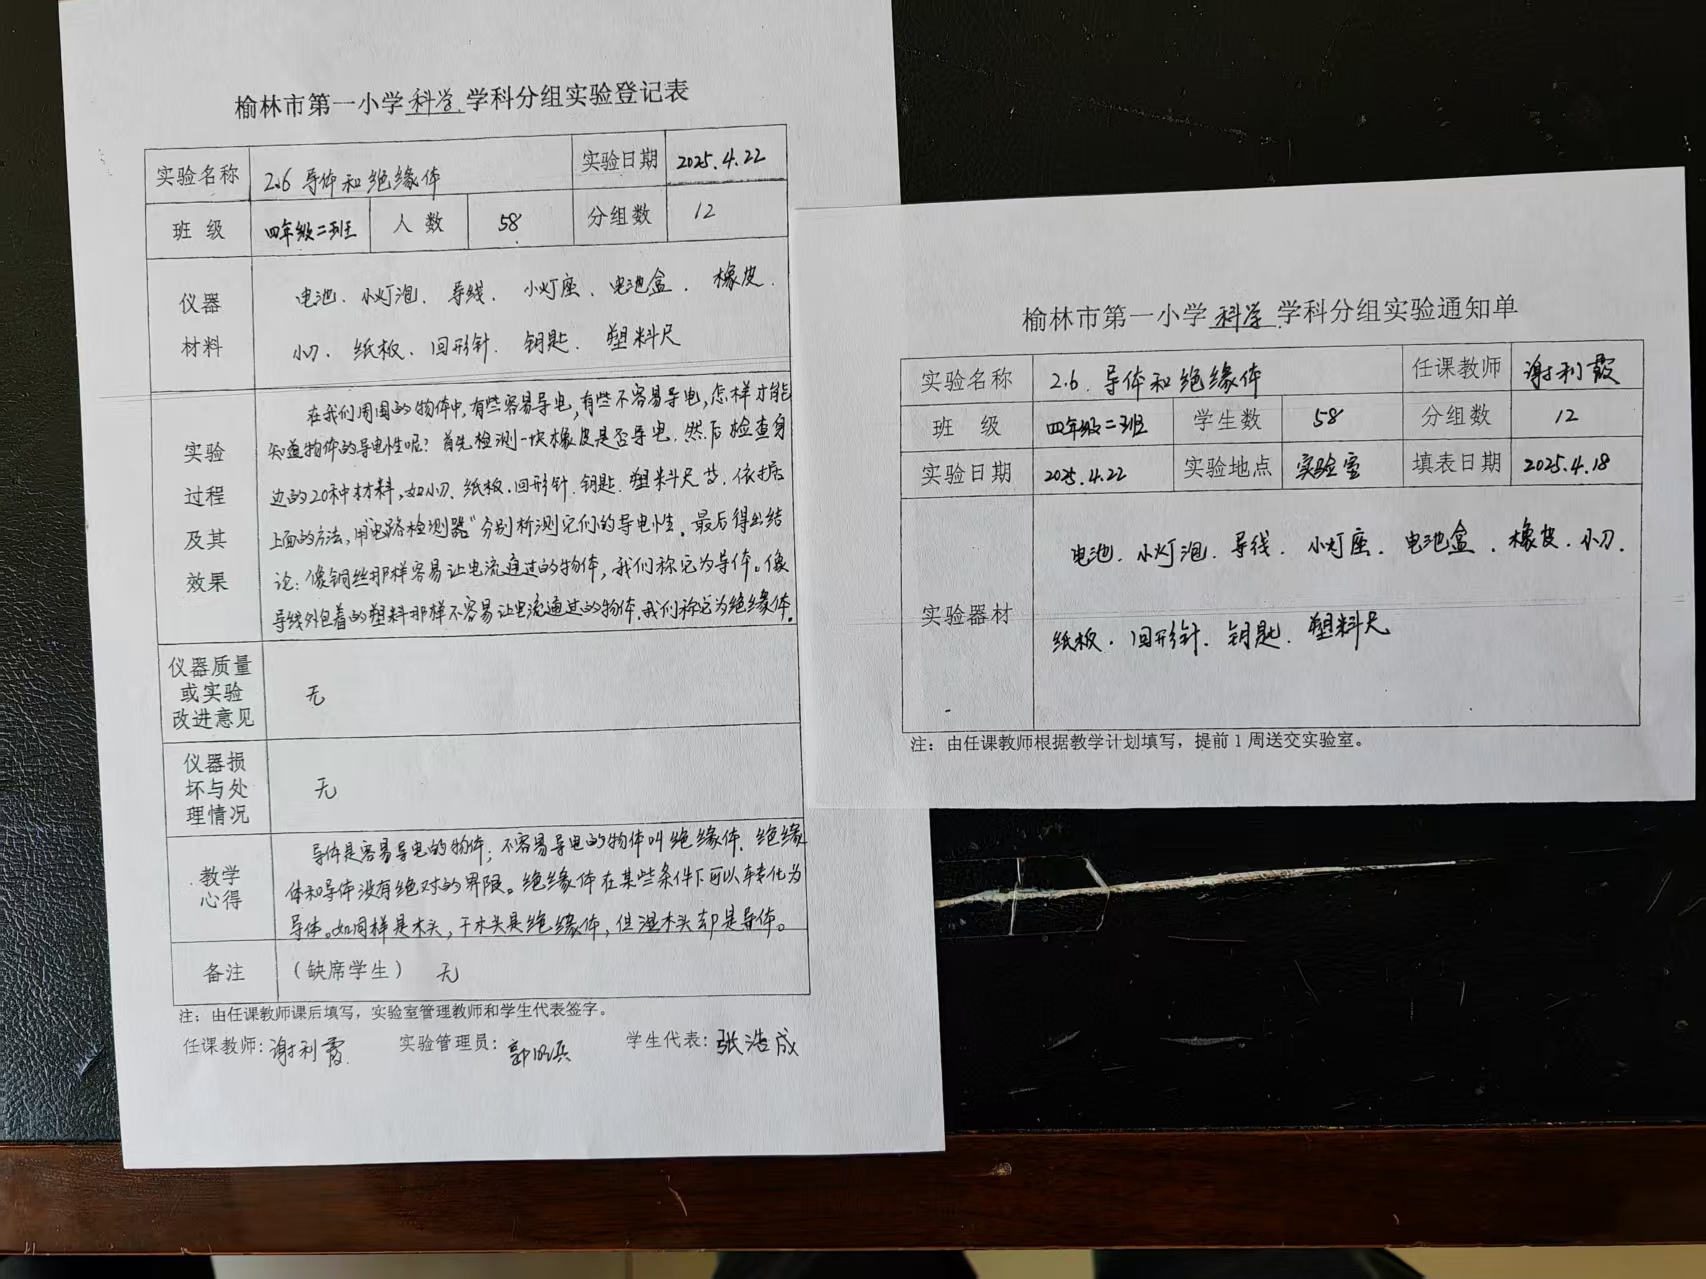 榆林市第一小学科学学科分组实验登记表
实验名称 2.6 导体和绝缘体 实验日期 2025.4.22
班级 四年级二班 人数 58 分组数 12
仪器材料
电池、小灯泡、导线、小灯座、电池盒、橡皮、
小刀、纸板、回形针、钥匙、塑料尺
实验过程及其效果
在我们周围的物体中,有些容易导电,有些不容易导电,怎样才能
知道物体的导电性呢?首先检测一块橡皮是否导电,然后检查身
边的20种材料,如小刀、纸板、回形针、钥匙、塑料尺等,依据
上面的方法,用"电路检测器"分别检测它们的导电性。最后得出结
论:像铜丝那样容易让电流通过的物体,我们称它为导体。像
导线外包着的塑料那样不容易让电流通过的物体,我们称它为绝缘体。
仪器质量
或实验
改进意见
无
仪器损
坏与处
理情况
无
教学
心得
导体是容易导电的物体;不容易导电的物体叫绝缘体,绝缘
体和导体没有绝对的界限。绝缘体在某些条件下可以转化为
导体。如同样是木头,干木头是绝缘体,但湿木头却是导体。
备注 (缺席学生) 无
注:由任课教师课后填写,实验室管理教师和学生代表签字。
任课教师:谢利霞 实验管理员: 学生代表:张浩成
榆林市第一小学科学学科分组实验通知单
实验名称 2.6. 导体和绝缘体 任课教师 谢利霞
班级 四年级二班 学生数 58 分组数 12
实验日期 2025.4.22 实验地点 实验室 填表日期 2025.4.18
实验器材
电池、小灯泡、导线、小灯座、电池盒、橡皮、小刀、
纸板、回形针、钥匙、塑料尺
注:由任课教师根据教学计划填写,提前1周送交实验室。